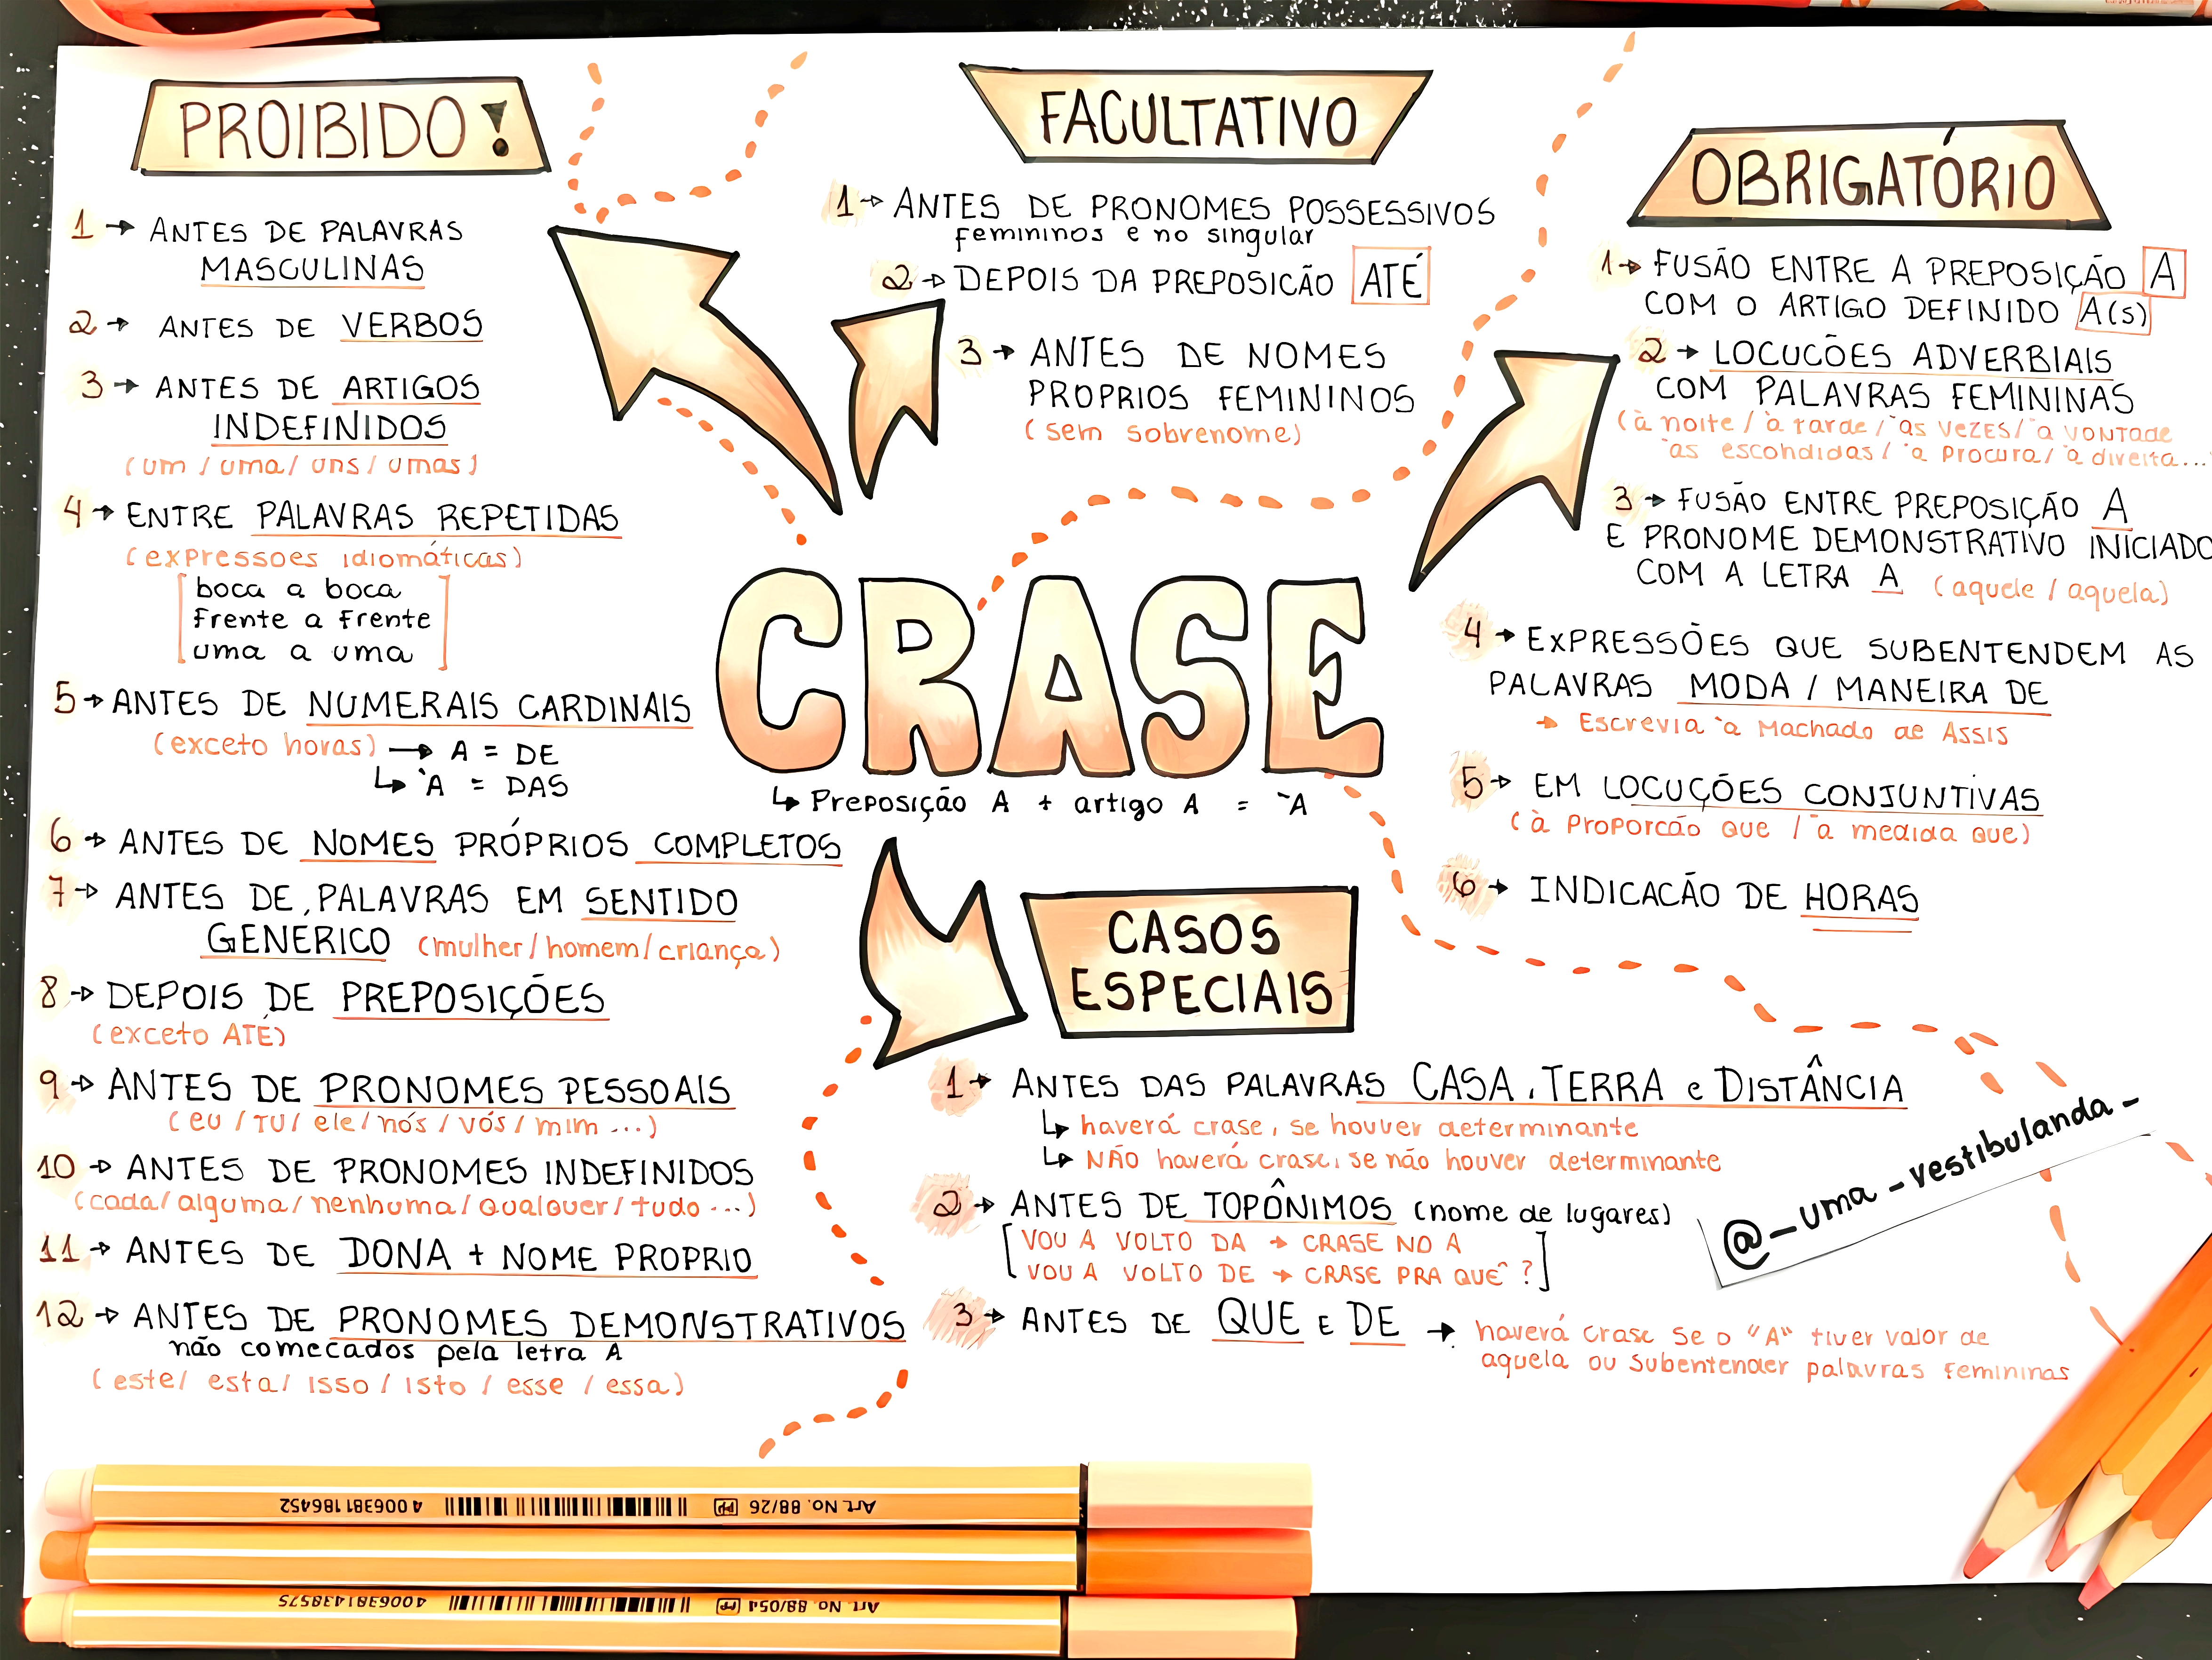 PROIBIDO!
1→ ANTES DE PALAVRAS
MASCULINAS
2→ ANTES DE VERBOS
3→ ANTES DE ARTIGOS
INDEFINIDOS
(um / uma / uns / umas)
4→ ENTRE PALAVRAS REPETIDAS
(expressoes idiomáticas)
boca a boca
frente a frente
uma a uma
5→ ANTES DE NUMERAIS CARDINAIS
(exceto horas) → A = DE
↳ `A = DAS
6→ ANTES DE NOMES PRÓPRIOS COMPLETOS
7→ ANTES DE PALAVRAS EM SENTIDO
GENÉRICO (mulher/homem/criança)
8→ DEPOIS DE PREPOSIÇÕES
(exceto ATÉ)
9→ ANTES DE PRONOMES PESSOAIS
(eu / TU / ele / nós / vós / mim ...)
10→ ANTES DE PRONOMES INDEFINIDOS
(cada/ alguma/ nenhuma/ qualquer/ tudo ...)
11→ ANTES DE DONA + NOME PROPRIO
12→ ANTES DE PRONOMES DEMONSTRATIVOS
não comecados pela letra A
(este/ esta/ isso / isto / esse / essa)
FACULTATIVO
1→ ANTES DE PRONOMES POSSESSIVOS
femininos e no singular
2→ DEPOIS DA PREPOSICÃO ATÉ
3→ ANTES DE NOMES
PROPRIOS FEMININOS
(sem sobrenome)
OBRIGATÓRIO
1→ FUSÃO ENTRE A PREPOSIÇÃO A
COM O ARTIGO DEFINIDO A(s)
2→ LOCUCÕES ADVERBIAIS
COM PALAVRAS FEMININAS
(à noite / à tarde / `as VEZES / `a VONTADE
`as escondidas / `a procura / `a direita...
3→ FUSÃO ENTRE PREPOSIÇÃO A
E PRONOME DEMONSTRATIVO INICIADO
COM A LETRA A (aquele / aquela)
4→ EXPRESSÕES QUE SUBENTENDEM AS
PALAVRAS MODA / MANEIRA DE
→ Escrevia `a Machado de Assis
5→ EM LOCUÇÕES CONJUNTIVAS
(à proporcão que / `a medida que)
6→ INDICACÃO DE HORAS
CRASE
↳ Preposição A + artigo A = `A
CASOS
ESPECIAIS
1→ ANTES DAS PALAVRAS CASA, TERRA e DISTÂNCIA
↳ haverá crase, se houver determinante
↳ NÃO haverá crase, se não houver determinante
2→ ANTES DE TOPÔNIMOS (nome de lugares)
VOU A VOLTO DA → CRASE NO A
VOU A VOLTO DE → CRASE PRA QUÊ?
3→ ANTES DE QUE E DE → haverá crase se o "A" tiver valor de
aquela ou subentender palavras femininas
@-uma-vestibulanda-
Art. No. 88/26 PP 4 006381 186452
Art. No. 88/054 PP 4006381438575